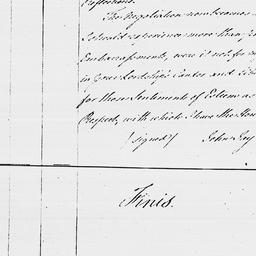 The Negotiation now becomes
I should experience more than
Embarrassments, were it not for my
in your Lordship's Candor and
for those Sentiments of Esteem
Respect, with which I have the Hon
(signed) John Jay
Finis.